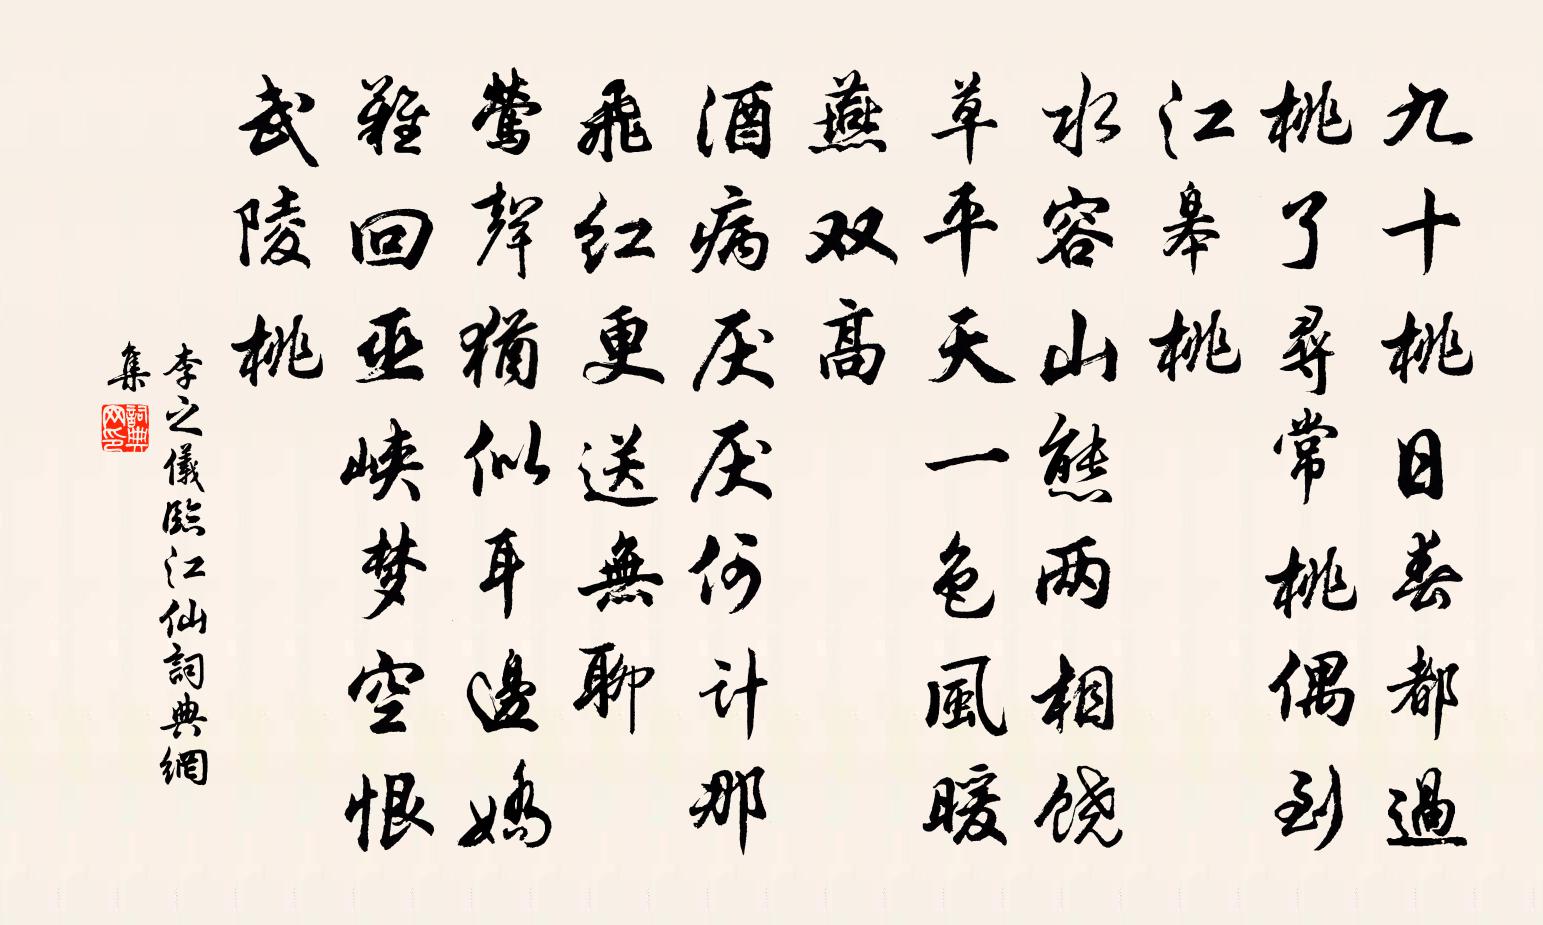 九十桃日春都過
桃了尋常桃偶到
江皋桃
水容山態两相饶
草平天一色風暖
燕双高
酒病厌厌何计那
飛红更送無聊
鶯聲猶似耳邊嬌
難回巫峡梦空恨
武陵桃
李之儀臨江仙詞典網
集
詞典网印